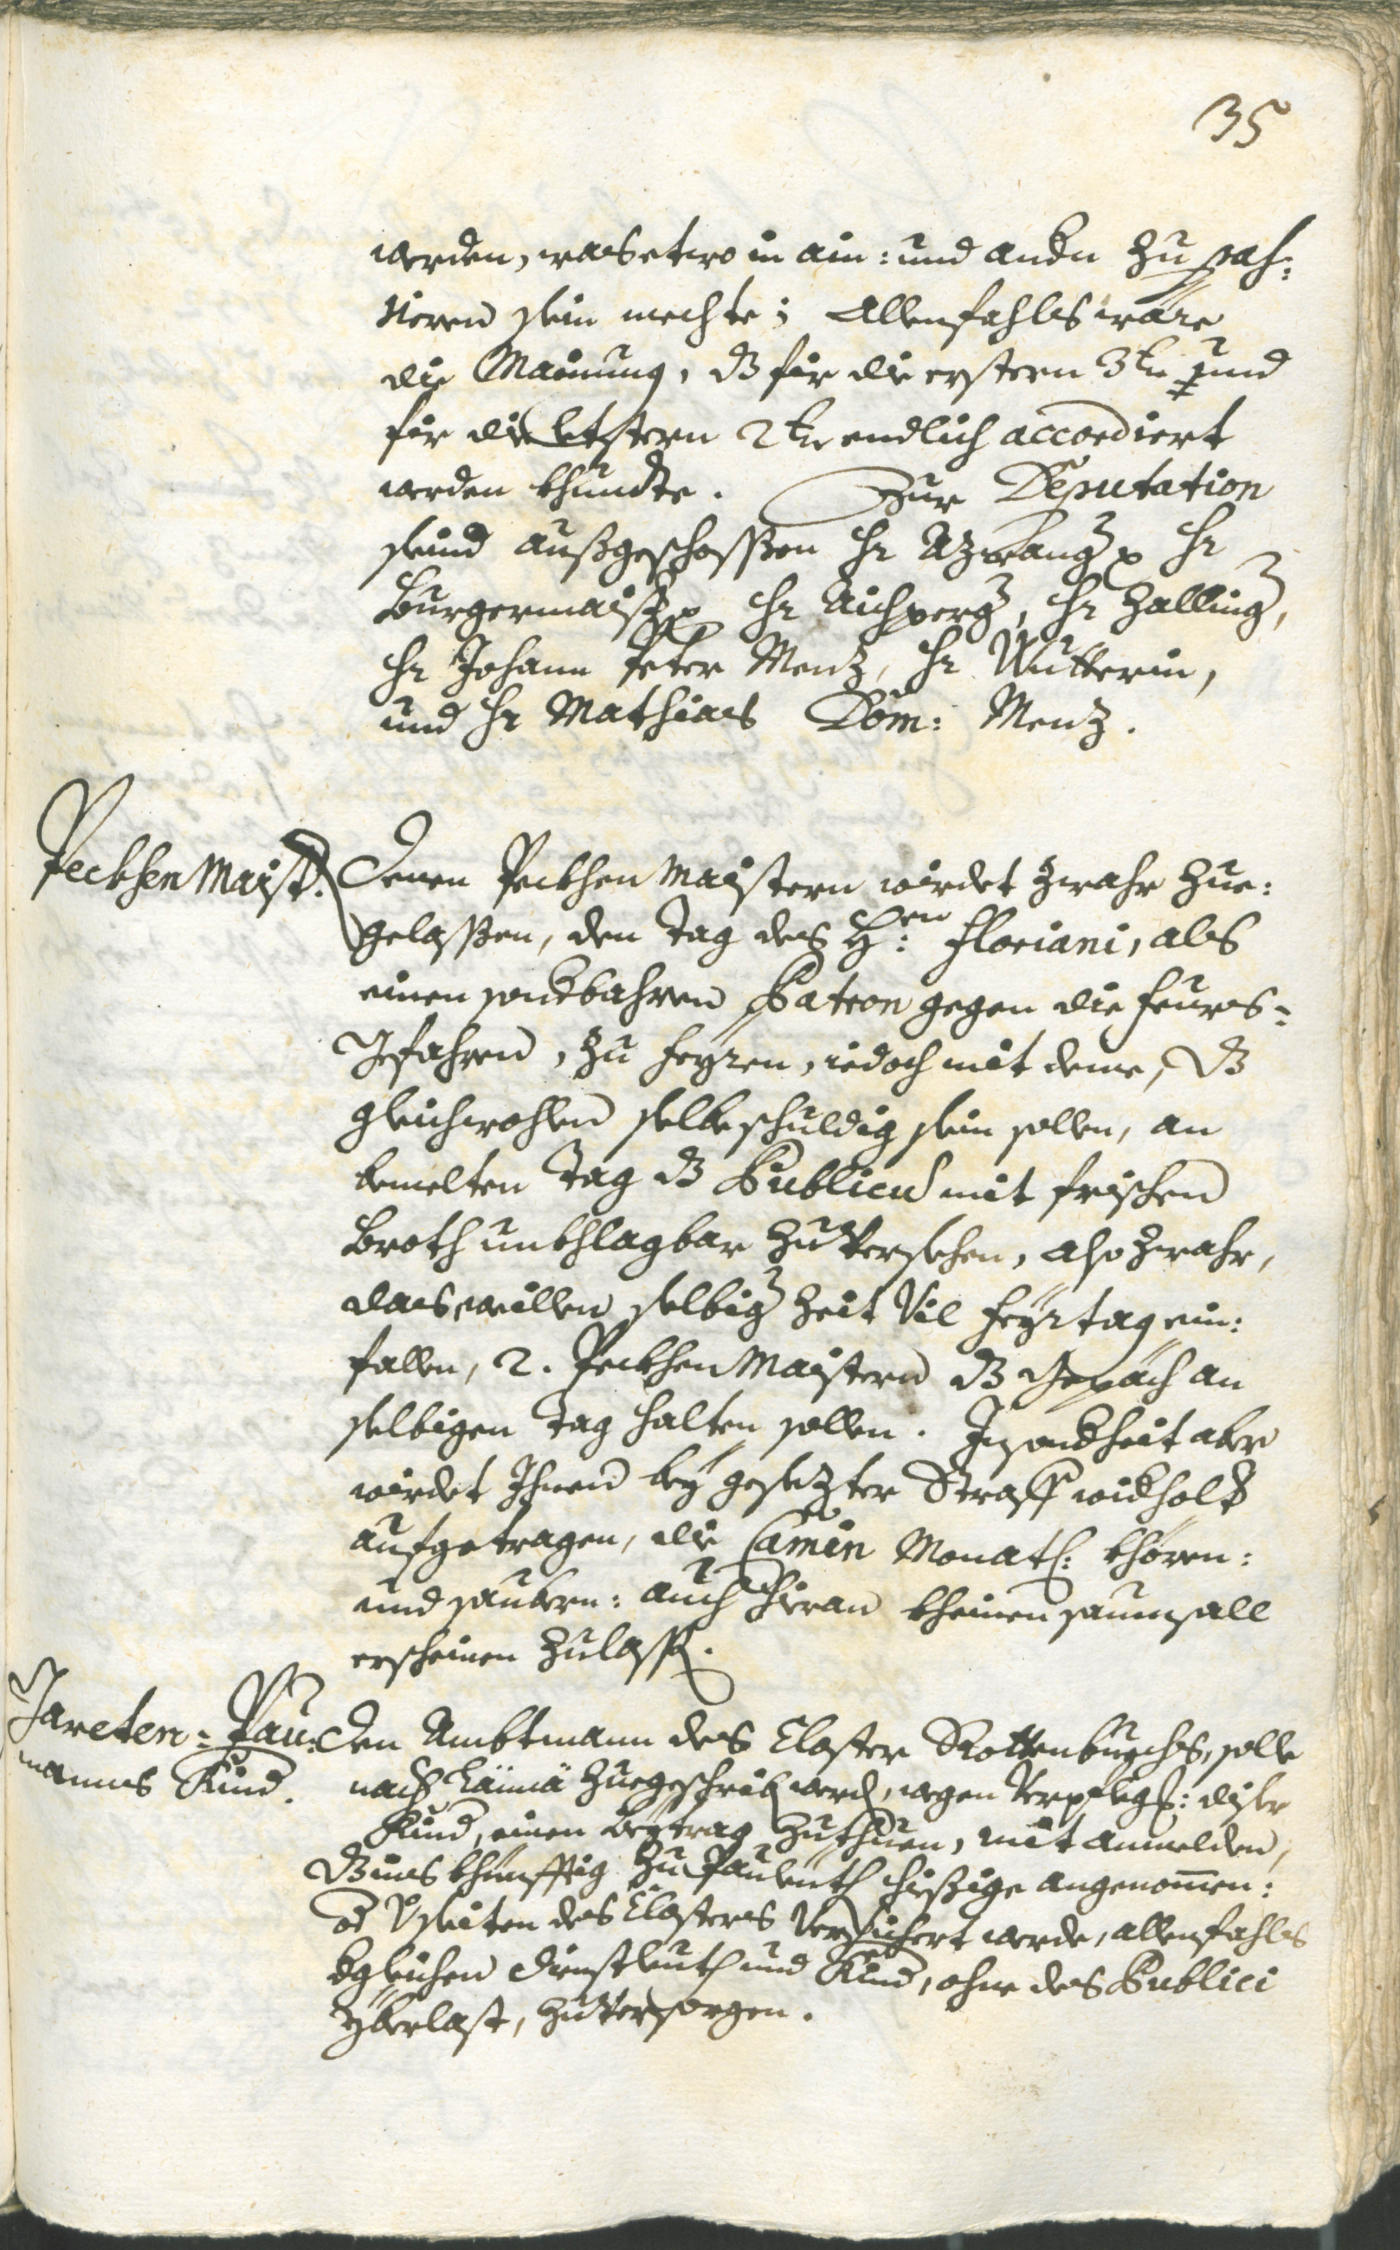 35
werden, was etwo in ain: und andn zu pas:
sieren sein mechte; Allenfahls wäre
die Mainung, dß fir die erstern 3 kr und
fir die letstern 2 kr endlich accordiert
werden khundte. Zur Deputation
seind außgeschossen Hr Azwang Hr
Burgermaister Hr Aichperg, Hr Zalling,
Hr Johann Peter Menz, Hr Wutterin,
und Hr Mathias Dom: Menz.
Peckhen Maist:
Denen Peckhen Maistern wirdet zwahr zue:
gelassen, den Tag des H:en Floriani, als
einen sondbahren Patron gegen die Feurs=
Gfahren, zu feyren, iedoch mit deme, dß
gleichwohlen selbe schuldig sein sollen, an
bemelten Tag dß Publicum mit frischen
Broth unkhlagbar zu versehen, also zwahr,
das weillen selbig Zeit vil Feyrtag ein:
fallen, 2. Peckhen Maistern dß Gepäch an
selbigen Tag halten sollen. Insondheit aber
wirdet Ihnen bey gesezter Straff widholt
aufgetragen, die Camin Monatl: khören:
und saubern: auch hieran kheinen saumsall
erscheinen zulassen.
Jareten = Pau:
manns Kind.
Den Ambtmann des Closter Rottenbuechs, solle
nach zuegeschriben werden, wegen Verpflegs: diser
Kind, einen beytrag zuthuen, mit anmelden,
dß ins khunfftig zu Pauleuth hießige angenommen:
od Vseiten des Closters versichert werde, allenfahls
dgleichen Dienstleuth und Kind, ohne des Publici
Yberlast, zu versorgen.